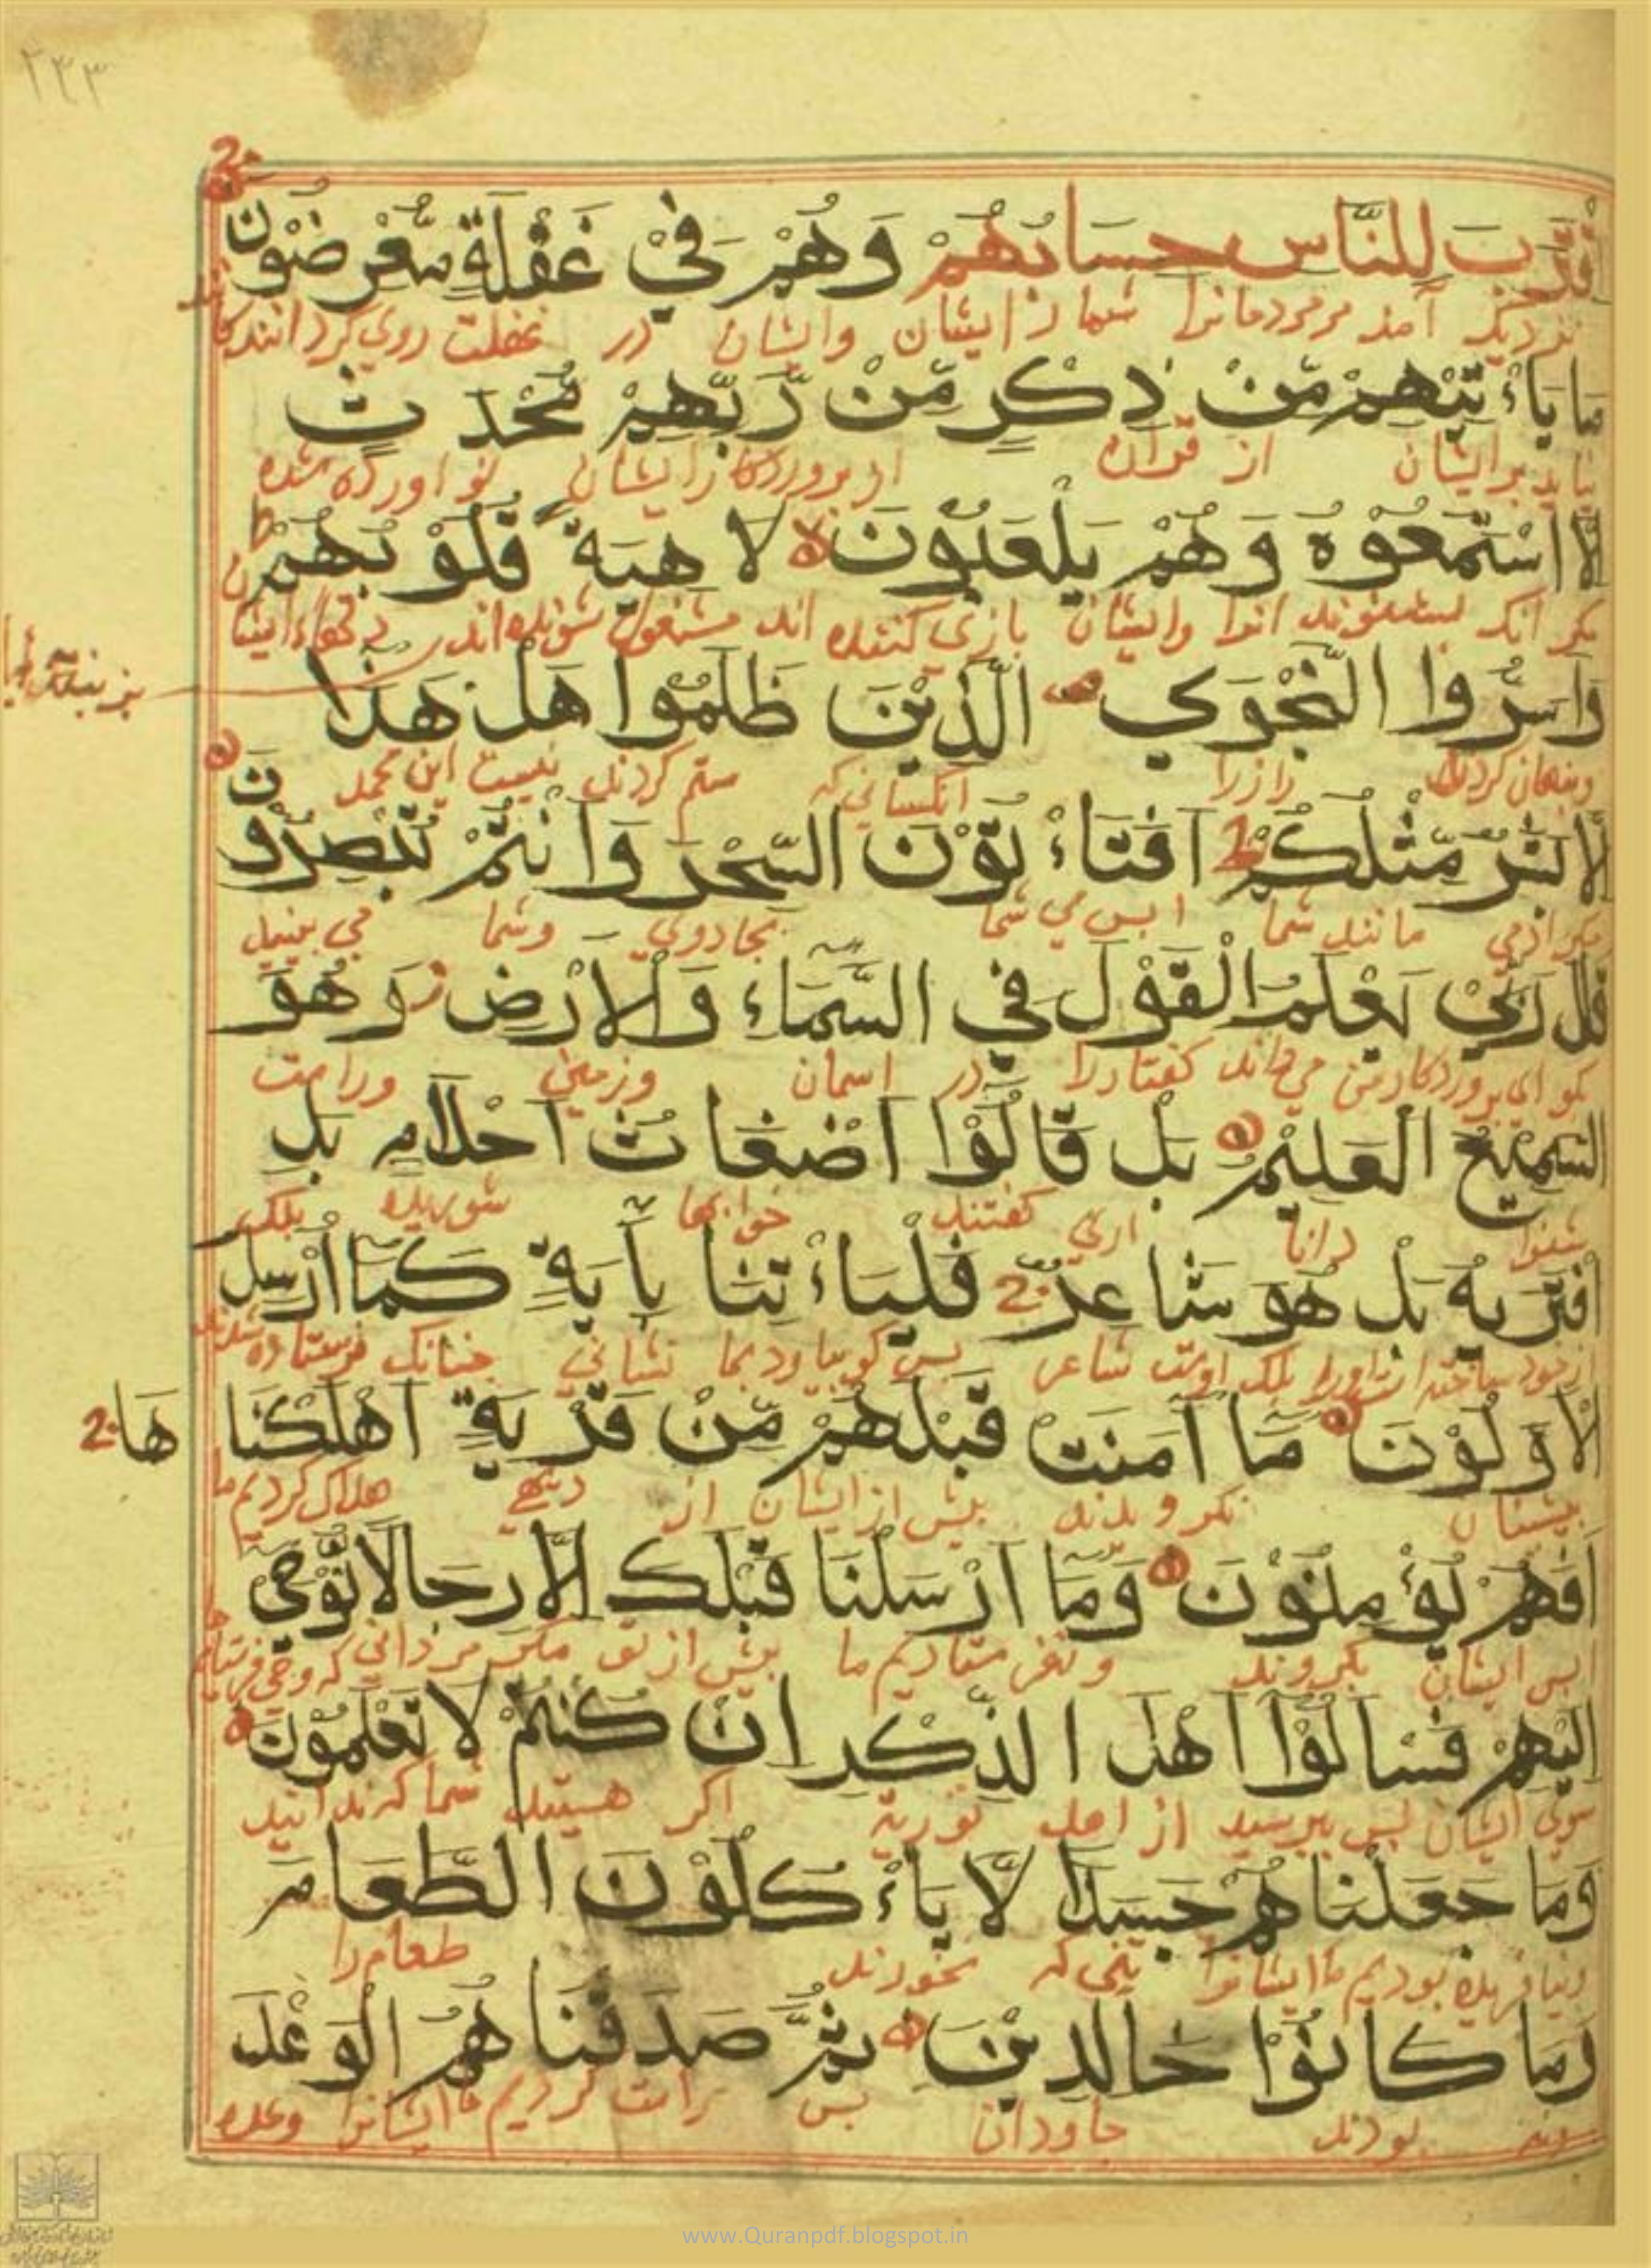 ۲۴۳
اقْتَرَبَ لِلنَّاسِ حِسَابُهُمْ وَهُمْ فِيْ غَفْلَةٍ مُّعْرِضُوْنَ
نزدیک آمد مر مردمانرا شمار ایشان وایشان در غفلت روی گردانندکا
مَا يَاءْتِيْهِمْ مِّنْ ذِكْرٍ مِّنْ رَّبِّهِمْ مُّحْدَثٍ
برایشان از قران از پروردکار ایشان نو اورده شده
اِلَّا اسْتَمَعُوْهُ وَهُمْ يَلْعَبُوْنَ لَاهِيَةً قُلُوْبُهُمْ
مکر انک بشنوند انرا وایشان بازی کننده اند مشغول شونده اند
وَاَسَرُّوا النَّجْوَي الَّذِيْنَ ظَلَمُوْا هَلْ هَذَا
وپنهان کردند راز را انکسانی که ستم کردند نیست این محمد
اِلَّا بَشَرٌ مِّثْلُكُمْ اَفَتَاءْتُوْنَ السِّحْرَ وَاَنْتُمْ تُبْصِرُوْنَ
مکر ادمی مانند شما ایس می شما بجادوی وشما می بینید
قُلْ رَبِّيْ يَعْلَمُ الْقَوْلَ فِي السَّمَاءِ وَالْاَرْضِ وَهُوَ
کو ای پروردکار من می داند کفتار را در اسمان وزمین وراست
السَّمِيْعُ الْعَلِيْمُ بَلْ قَالُوْا اَضْغَاثُ اَحْلَامٍ بَلِ
شنوا دانا اری کفتند خوابها شوریده بلک
افْتَرَيهُ بَلْ هُوَ شَاعِرٌ فَلْيَاءْتِنَا بِآيَةٍ كَمَا اُرْسِلَ
بلک اوست شاعر پس کو بیاورد بما نشانی چنانک فرستاده شدند
الْاَوَّلُوْنَ مَا آمَنَتْ قَبْلَهُمْ مِّنْ قَرْيَةٍ اَهْلَكْنَا هَا
پیشنان نکرویدند پیش از ایشان از دیهی هلاک کردیم ما
اَفَهُمْ يُؤْمِنُوْنَ وَمَا اَرْسَلْنَا قَبْلَكَ اِلَّا رِجَالًا نُّوْحِيْ
ایس ایشان بکروند ونفرستادیم ما پیش از تو مکر مردانی که وحی
اِلَيْهِمْ فَسْاَلُوْا اَهْلَ الذِّكْرِ اِنْ كُنْتُمْ لَا تَعْلَمُوْنَ
سوی ایشان پس بپرسید از اهل توریة اکر هستید شما که ندانید
وَمَا جَعَلْنَاهُمْ جَسَدًا لَّا يَاءْكُلُوْنَ الطَّعَامَ
ونیافریده بودیم ما ایشانرا تنی که نخوردند طعام را
وَمَا كَانُوْا خَالِدِيْنَ ثُمَّ صَدَقْنَاهُمُ الْوَعْدَ
بودند جاودان پس راست کردیم ما ایشانرا وعده
www.Quranpdf.blogspot.in